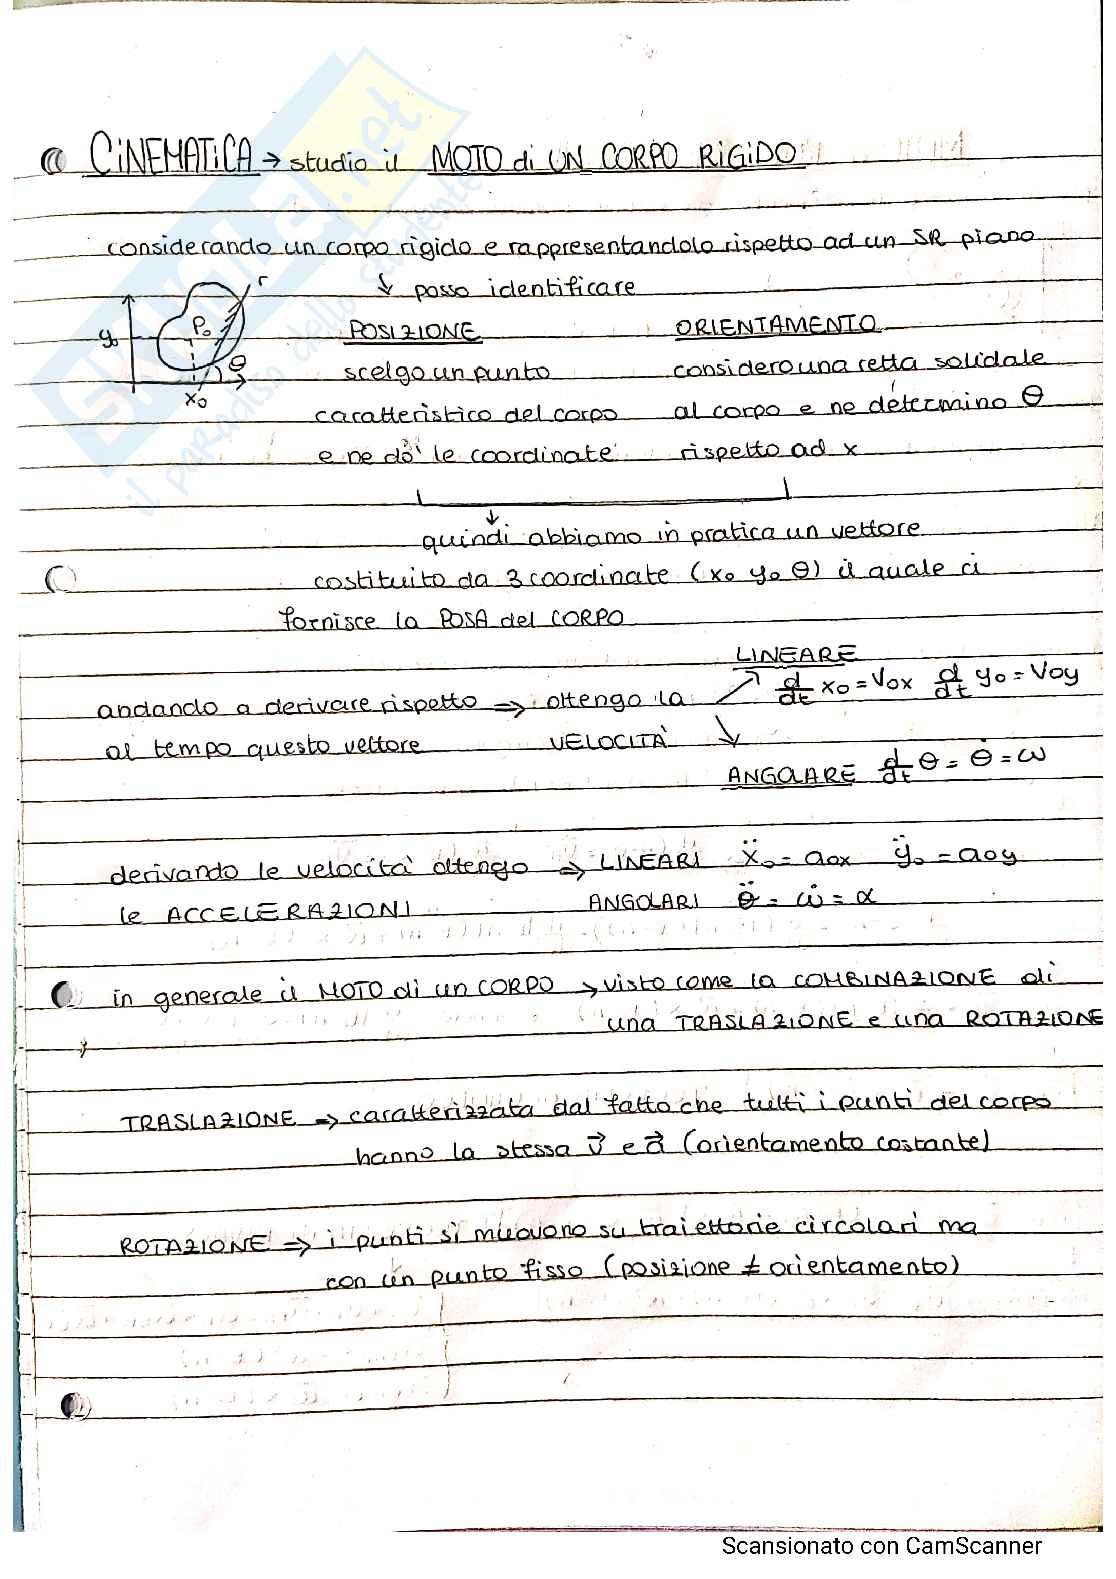 CINEMATICA → studio il MOTO di UN CORPO RIGIDO
considerando un corpo rigido e rappresentandolo rispetto ad un SR piano
↓ posso identificare
r
y₀
P₀
θ
x₀
POSIZIONE
scelgo un punto
caratteristico del corpo
e ne dò le coordinate
ORIENTAMENTO
considero una retta solidale
al corpo e ne determino θ
rispetto ad x
↓
quindi abbiamo in pratica un vettore
costituito da 3 coordinate (x₀ y₀ θ) il quale ci
fornisce la POSA del CORPO
andando a derivare rispetto ⇒ ottengo la
al tempo questo vettore VELOCITÀ
LINEARE
d/dt x₀ = V₀x d/dt y₀ = V₀y
ANGOLARE d/dt θ = θ̇ = ω
derivando le velocità ottengo ⇒ LINEARI ẍ₀ = a₀x ÿ₀ = a₀y
le ACCELERAZIONI ANGOLARI θ̈ = ω̇ = α
in generale il MOTO di un CORPO → visto come la COMBINAZIONE di
una TRASLAZIONE e una ROTAZIONE
TRASLAZIONE ⇒ caratterizzata dal fatto che tutti i punti del corpo
hanno la stessa v⃗ e a⃗ (orientamento costante)
ROTAZIONE ⇒ i punti si muovono su traiettorie circolari ma
con un punto fisso (posizione ≠ orientamento)
skuola.net
il paradiso dello studente
Scansionato con CamScanner